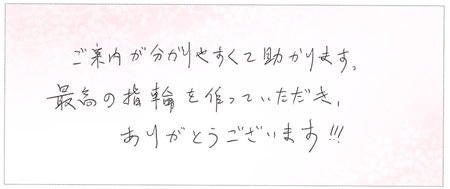 ご案内が分かりやすくて助かります。
最高の指輪を作っていただき、
ありがとうございます!!!